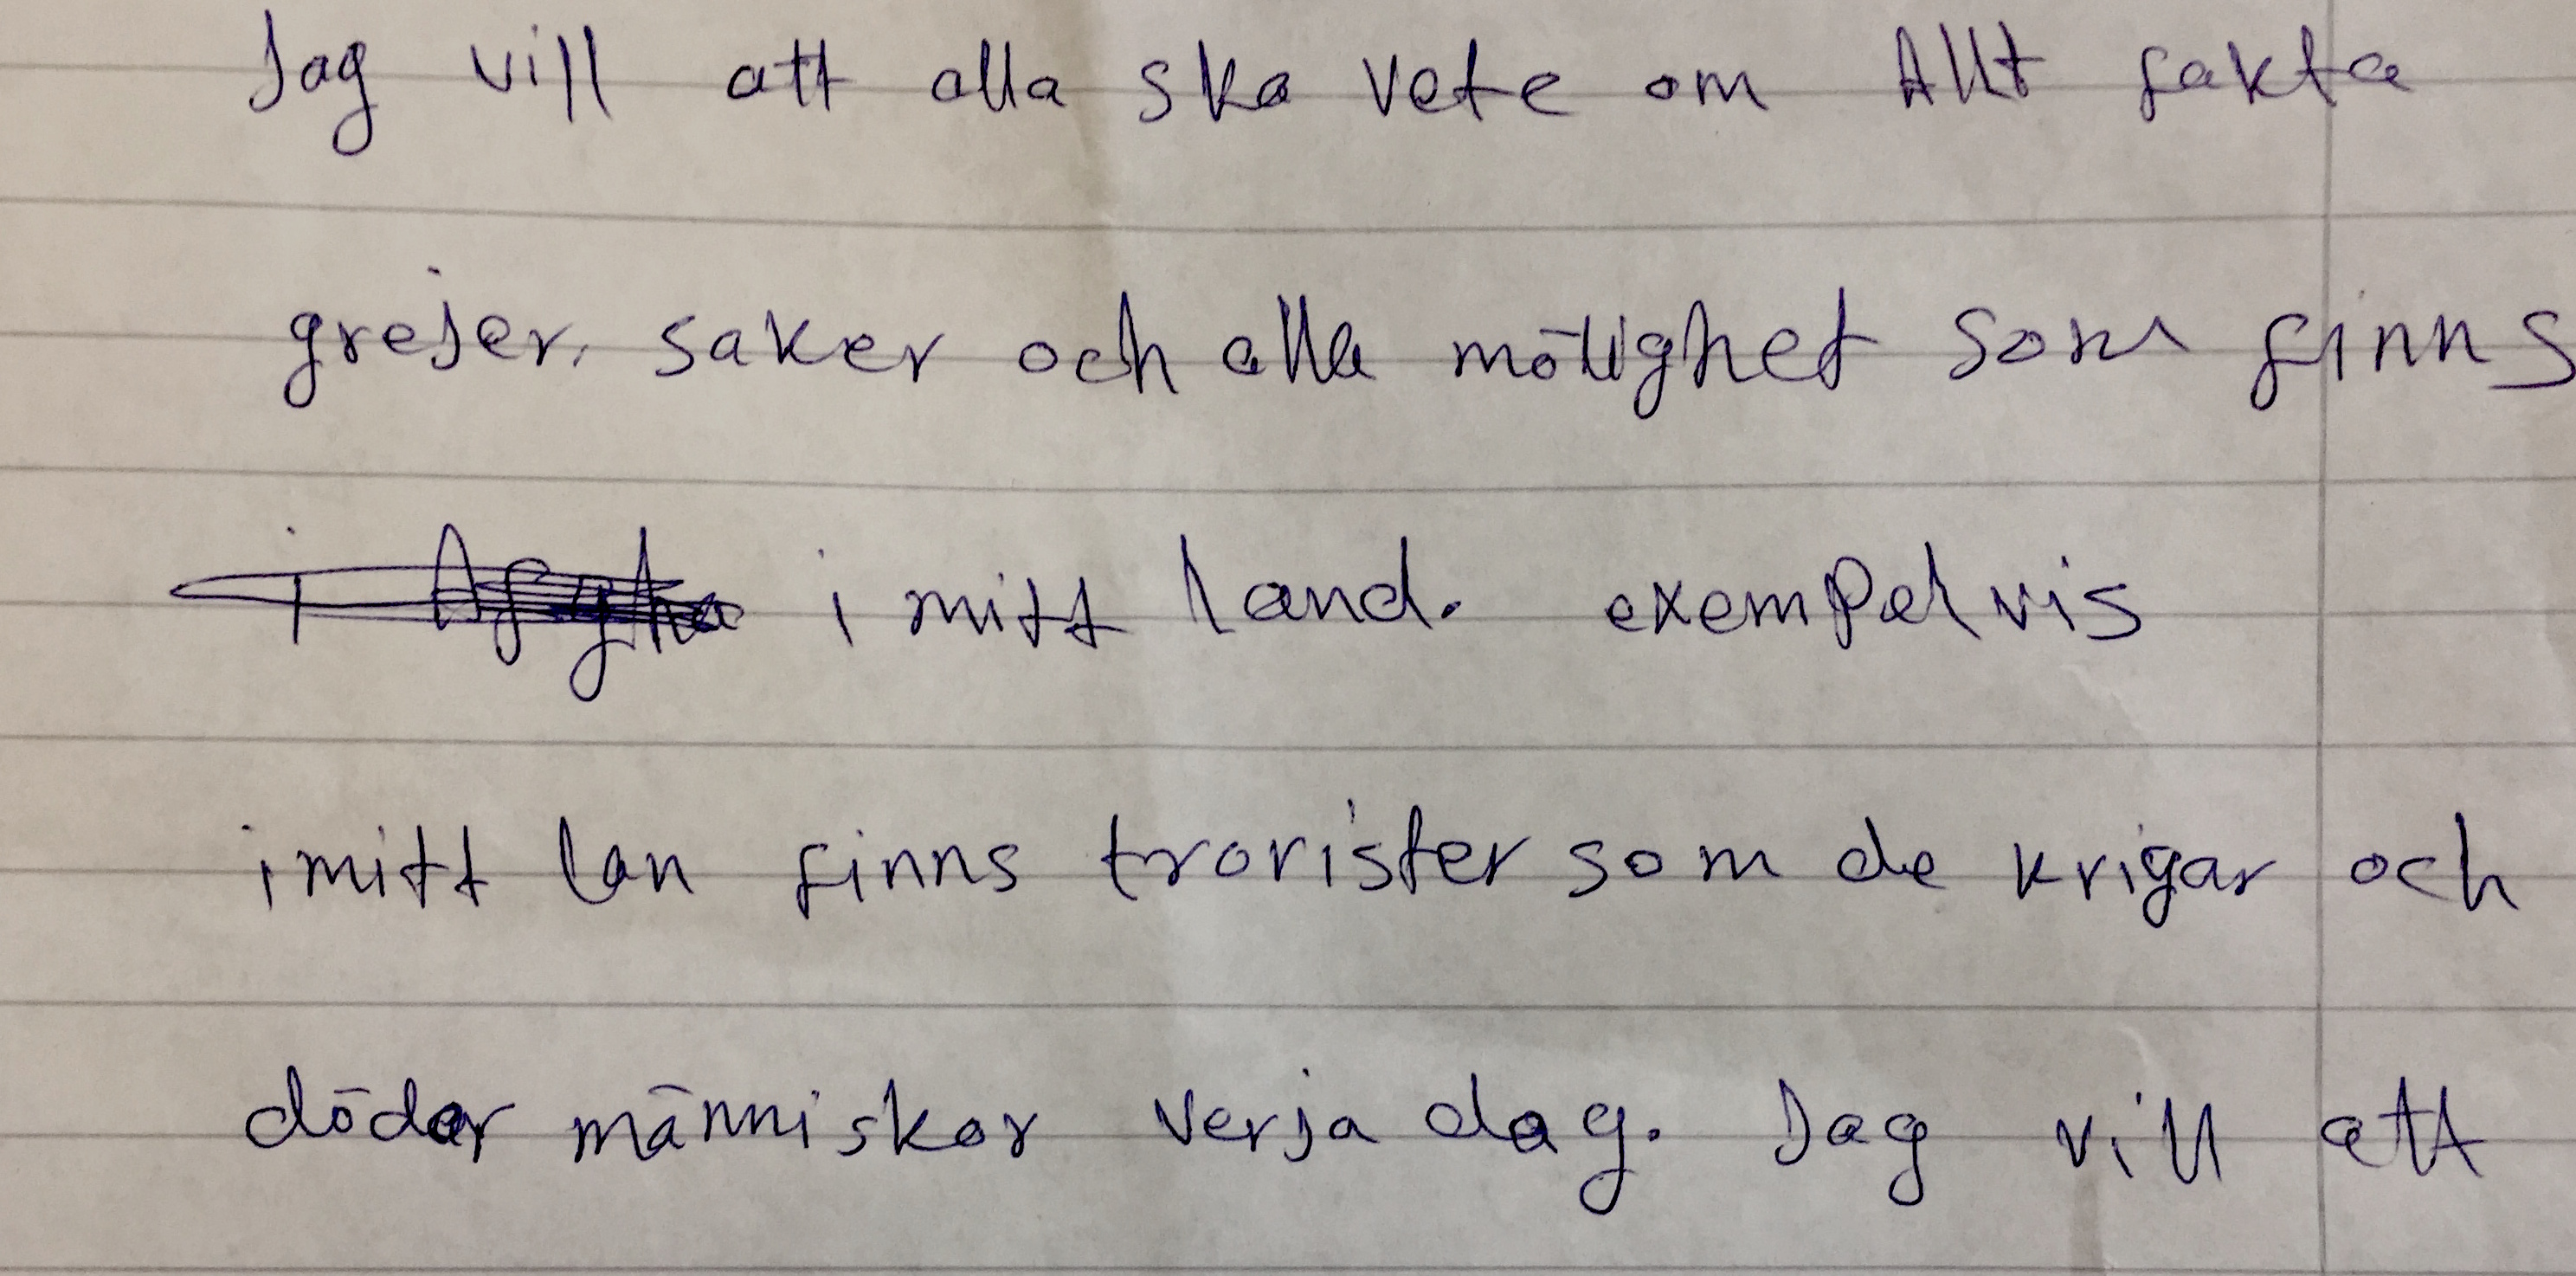 Jag vill att alla ska vete om Allt fakta
grejer, saker och alla mölighet som finns
i Afgha i mitt land. exempel vis
i mitt lan finns trorister som de krigar och
dödar människor verja dag. Jag vill att